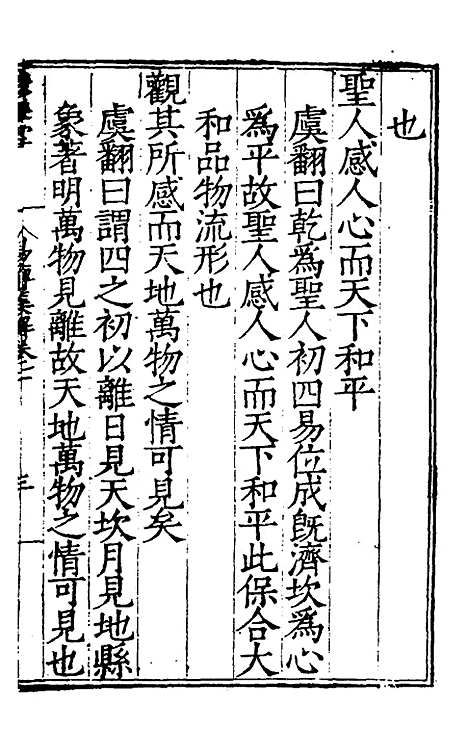 也
聖人感人心而天下和平
虞翻曰乾為聖人初四易位成旣濟坎為心
為平故聖人感人心而天下和平此保合大
和品物流形也
觀其所感而天地萬物之情可見矣
虞翻曰謂四之初以離日見天坎月見地縣
象著明萬物見離故天地萬物之情可見也
三